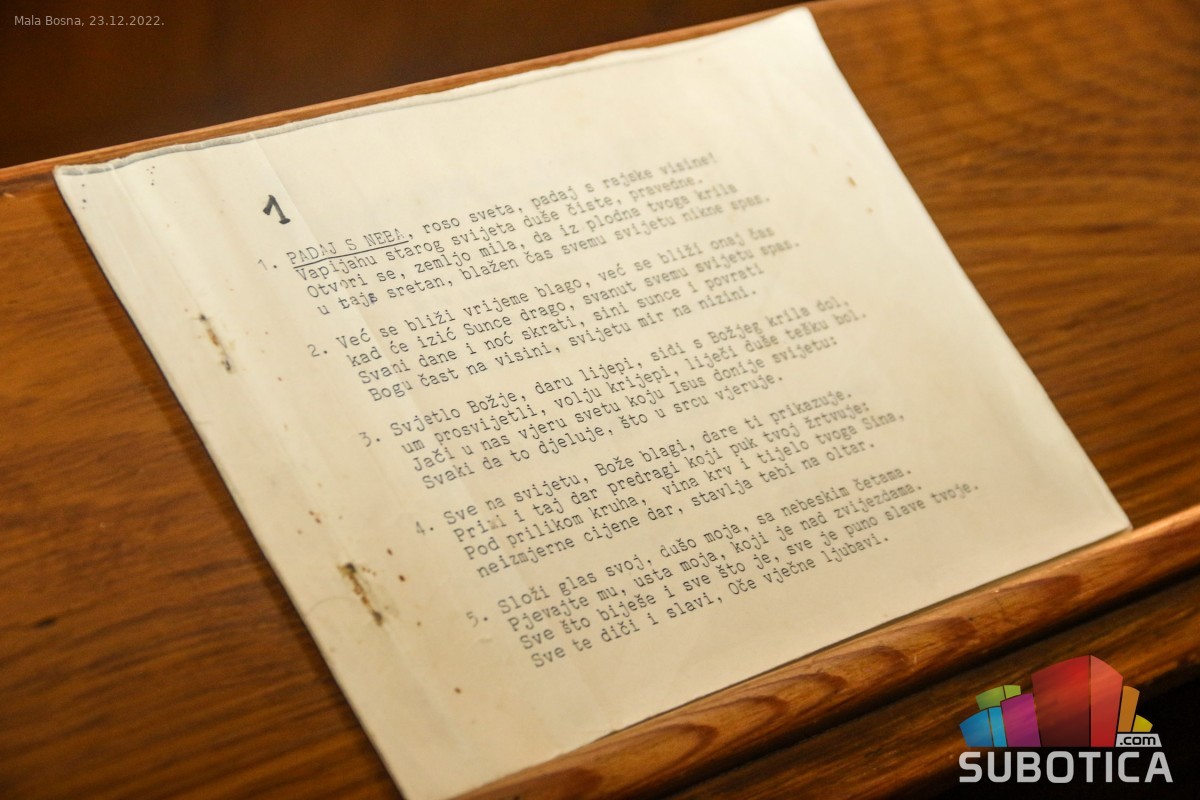 Mala Bosna, 23.12.2022.
1
1. PADAJ S NEBA, roso sveta, padaj s rajske visine!
Vapijahu starog svijeta duše čiste, pravedne.
Otvori se, zemljo mila, da iz plodna tvoga krila
u tajs sretan, blažen čas svemu svijetu nikne spas.
2. Već se bliži vrijeme blago, već se bliži onaj čas
kad će izić Sunce drago, svanut svemu svijetu spas.
Svani dane i noć skrati, sini sunce i povrati
Bogu čast na visini, svijetu mir na nizini.
3. Svjetlo Božje, daru lijepi, sidi s Božjeg krila dol,
um prosvijetli, volju krijepi, liječi duše tešku bol.
Jači u nas vjeru svetu koju Isus donije svijetu:
Svaki da to djeluje, što u srcu vjeruje.
4. Sve na svijetu, Bože blagi, dare ti prikazuje.
Primi i taj dar predragi koji puk tvoj žrtvuje:
Pod prilikom kruha, vina krv i tijelo tvoga Sina,
neizmjerne cijene dar, stavlja tebi na oltar.
5. Složi glas svoj, dušo moja, sa nebeskim četama.
Pjevajte mu, usta moja, koji je nad zvijezdama.
Sve što biješe i sve što je, sve je puno slave tvoje.
Sve te diči i slavi, Oče vječne ljubavi.
.com
SUBOTICA